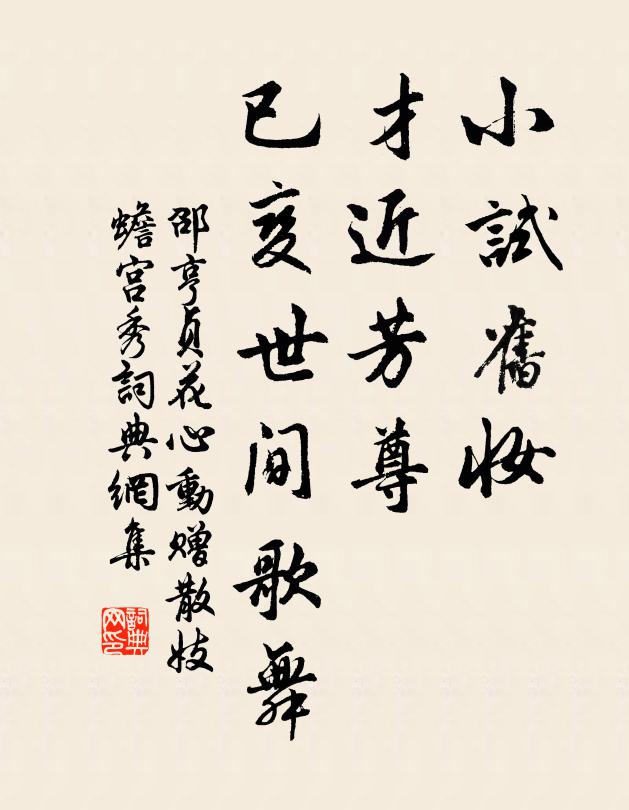 小試舊妝
才近芳尊
已变世間歌舞
邵亨貞花心動贈散妓
蟾宮秀詞典網集
詞典
网印